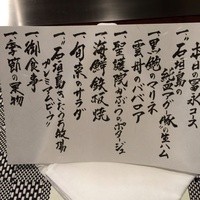 本日の富永コース
一、石垣島の
紅豚アグー豚の生ハム
一、黒鮪のマリネ
雲丹のババロア
一、聖護院かぶのポタージュ
一、海鮮鉄板焼
一、旬菜のサラダ
一、石垣島きたうち牧場
プレミアムビーフ
一、御食事
一、季節の果物